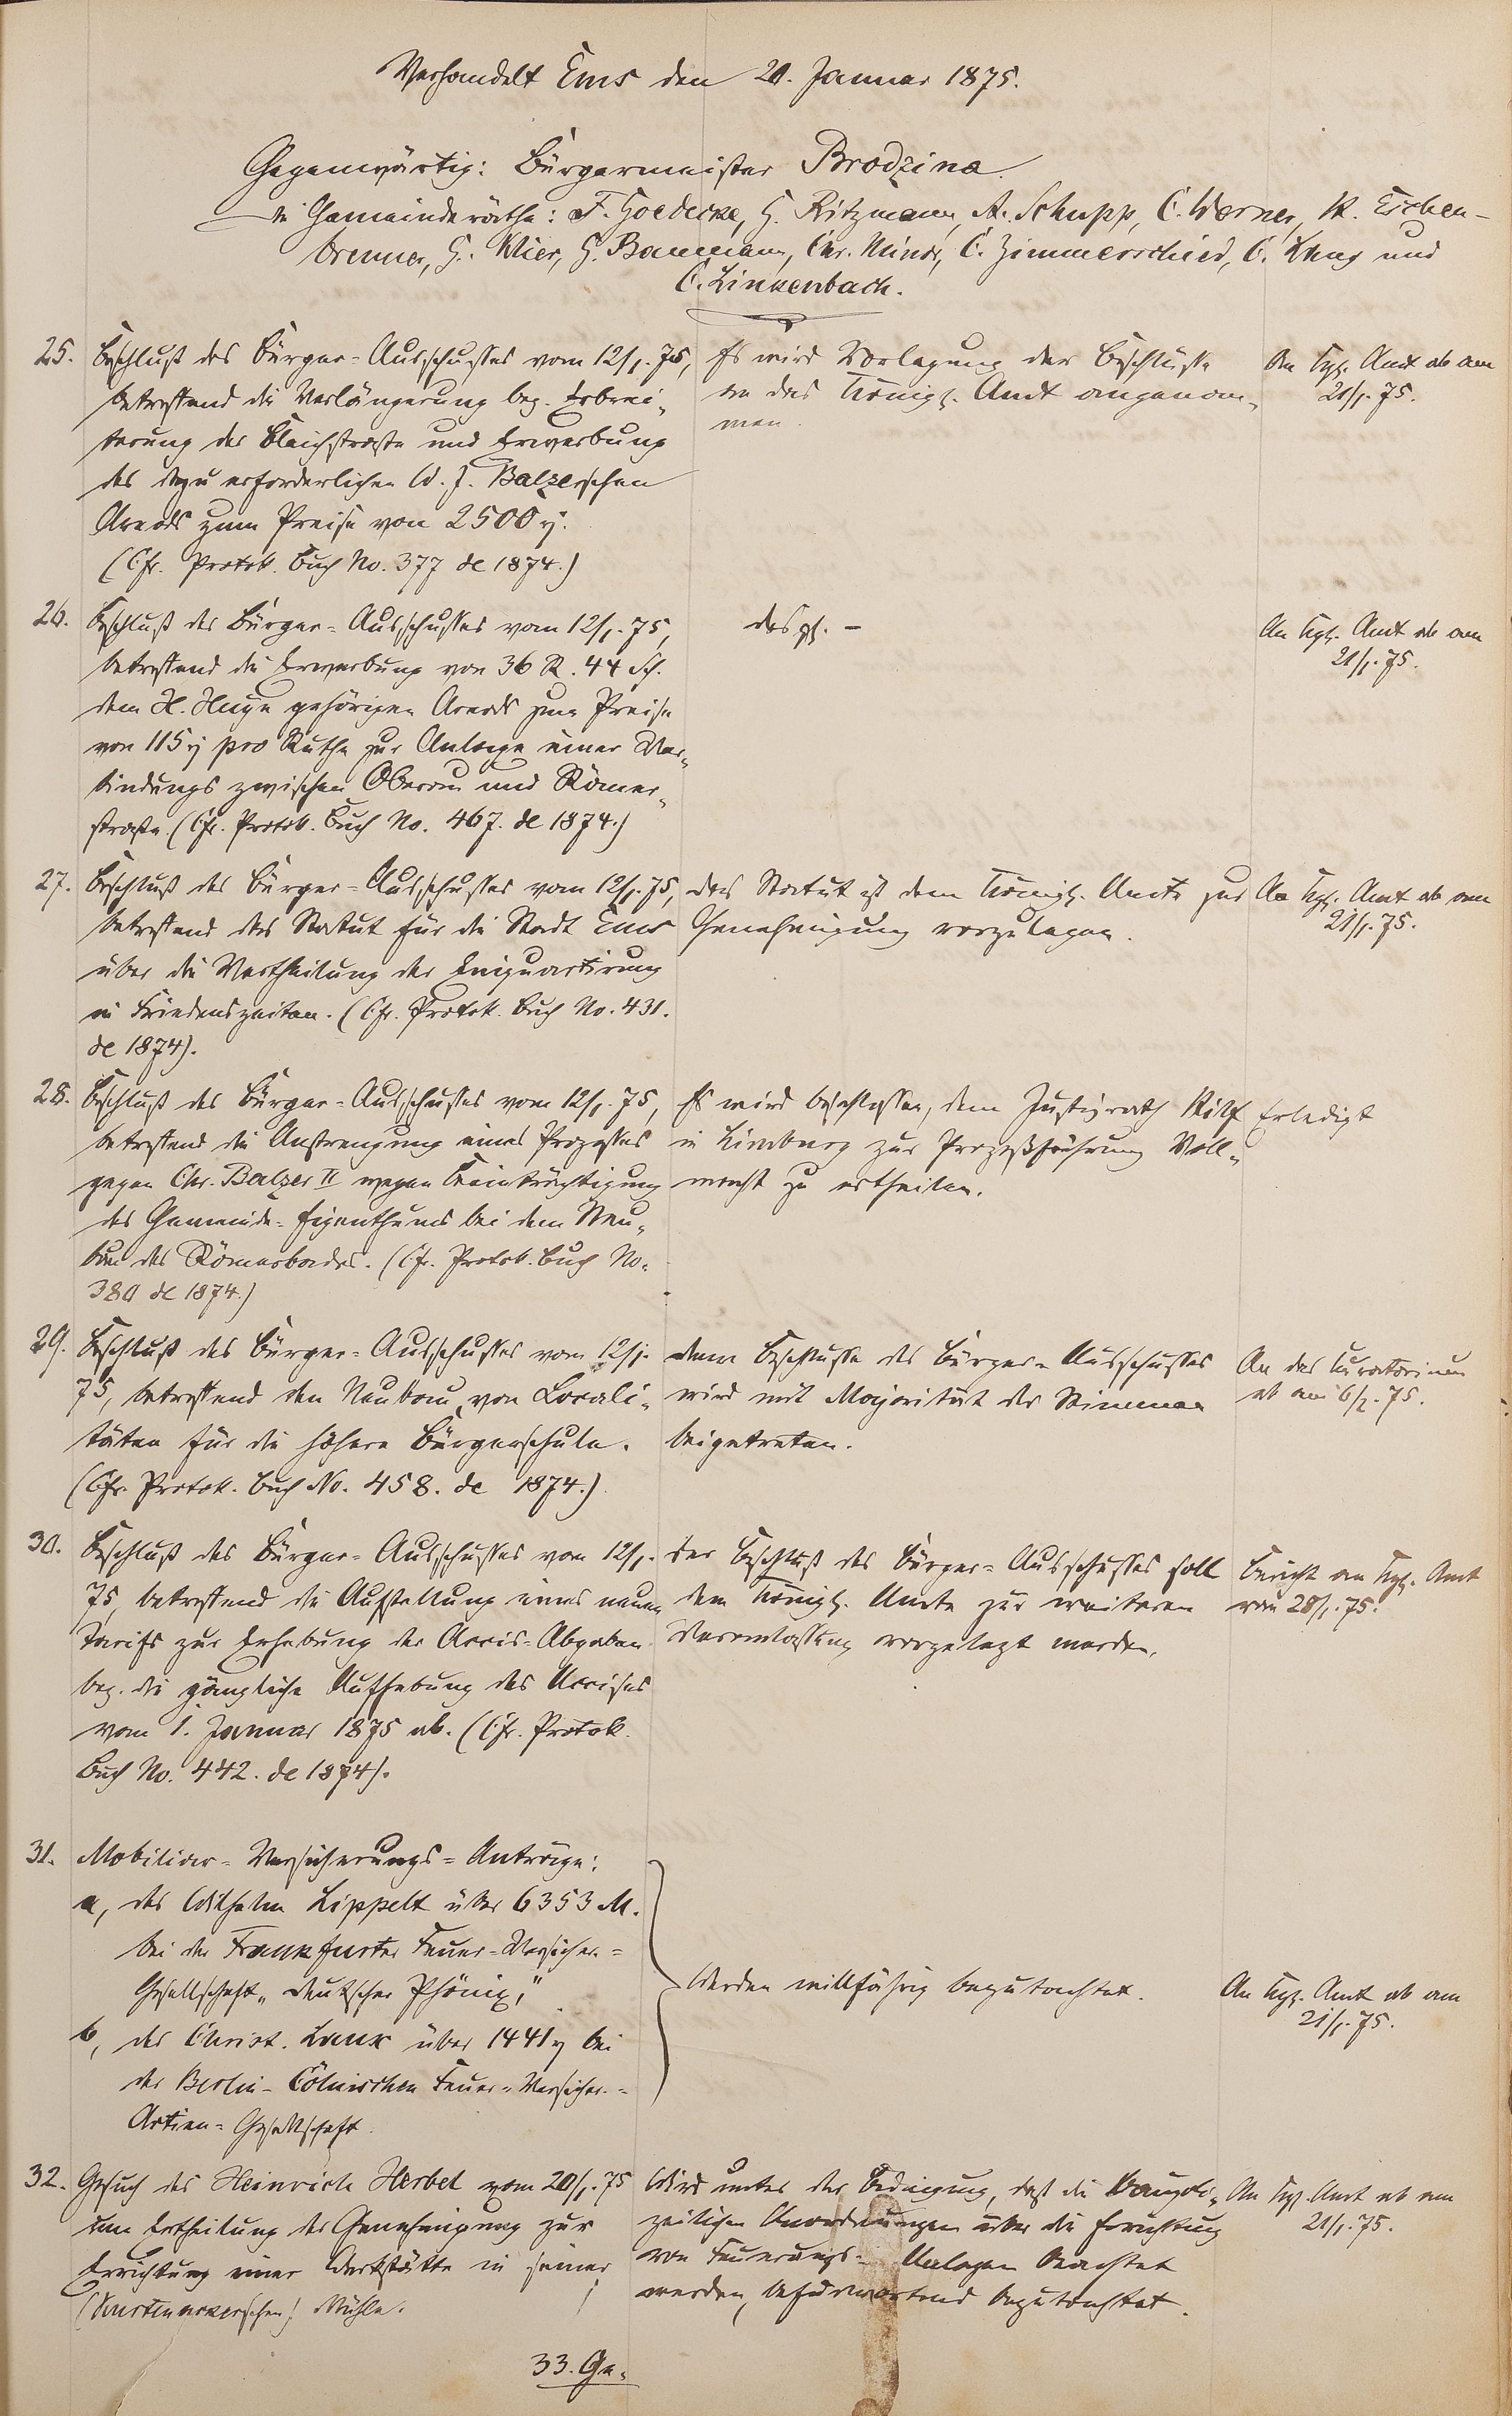 Verhandelt Ems den 21. Januar 1875.
Gegenwärtig: Bürgermeister Brodzina
die Gemeinderäthe: F. Goedecke, G. Ritzmann, A. Schupp, C. Werner, W. Eichen-
brenner, G. Klier, G. Baumann, Chr. Minor, C. Zimmerschied, C. Lang und
C. Linkenbach.
25. Beschluß des Bürger-Ausschusses vom 12/1. 75,
betreffend die Verlängerung bez. Erbrei-
terung der Bleichstraße und Erwerbung
des dazu erforderlichen W. J. Balzerschen
Areals zum Preise von 2500 f.
(Cfr. Protok. Buch No. 377 de 1874.)
Es wird Vorlegung der Beschlüsse
an das Königl. Amt angenom-
men.
An Kgl. Amt ab am
21/1. 75.
26. Beschluß des Bürger-Ausschusses vom 12/1. 75,
betreffend die Erwerbung von 36 R. 44 Sch.
dem H. Huyn gehörigen Areals zum Preise
von 115 f pro Ruthe zur Anlage einer Ver-
bindungs zwischen Oberau und Römer-
straße. (Cfr. Protok. Buch No. 467. de 1874.)
desgl. -
An Kgl. Amt ab am
21/1. 75.
27. Beschluß des Bürger-Ausschusses vom 12/1. 75,
betreffend das Statut für die Stadt Ems
über die Vertheilung der Einquartirung
in Friedenszeiten. (Cfr. Protok. Buch No. 431.
de 1874).
Das Statut ist dem Königl. Amte zur
Genehmigung vorzulegen.
An Kgl. Amt ab am
21/1. 75.
28. Beschluß des Bürger-Ausschusses vom 12/1. 75,
betreffend die Anstrengung eines Prozesses
gegen Chr. Balzer II wegen Beeinträchtigung
des Gemeinde-Eigenthums bei dem Neu-
bau des Römerbades. (Cfr. Protok. Buch No.
380 de 1874.)
Es wird beschlossen, dem Justizrath Hilf
in Limburg zur Prozeßführung Voll-
macht zu ertheilen.
Erledigt
29. Beschluß des Bürger-Ausschusses vom 12/1.
75, betreffend den Neubau von Locali-
täten für die höhere Bürgerschule.
(Cfr. Protok. Buch No. 458. de 1874.)
Dem Beschlusse des Bürger-Ausschusses
wird mit Majorität der Stimmen
beigetreten.
An das Curatorium
ab am 6/2. 75.
30. Beschluß des Bürger-Ausschusses vom 12/1.
75, betreffend die Aufstellung eines neuen
Tarifs zur Erhebung der Accis-Abgaben
bez. die gänzliche Aufhebung des Accises
vom 1. Januar 1875 ab. (Cfr. Protok.
Buch No. 442. de 1874).
Der Beschluß des Bürger-Ausschusses soll
dem Königl. Amte zur weiteren
Veranlassung vorgelegt werden.
Bericht an Kgl. Amt
vom 28/1. 75.
31. Mobiliar-Versicherungs-Anträge:
a, des Wilhelm Lippelt über 6353 M.
bei der Frankfurter Feuer-Versicher.-
Gesellschaft „Deutscher Phönix,"
b, des Christ. Lank über 1441 f bei
der Berlin-Cölnischen Feuer-Versicher.-
Actien-Gesellschaft.
Werden willfährig begutachtet.
An Kgl. Amt ab am
21/1. 75.
32. Gesuch des Heinrich Herbel vom 20/1. 75
um Ertheilung der Genehmigung zur
Errichtung einer Werkstätte in seiner
Mühle.
Wird unter der Bedingung, daß die Baupoli-
zeilichen Anordnungen über die Errichtung
von Feuerungs-Anlagen beachtet
werden, befürwortend begutachtet.
An Kgl. Amt ab am
21/1. 75.
33. Ge-